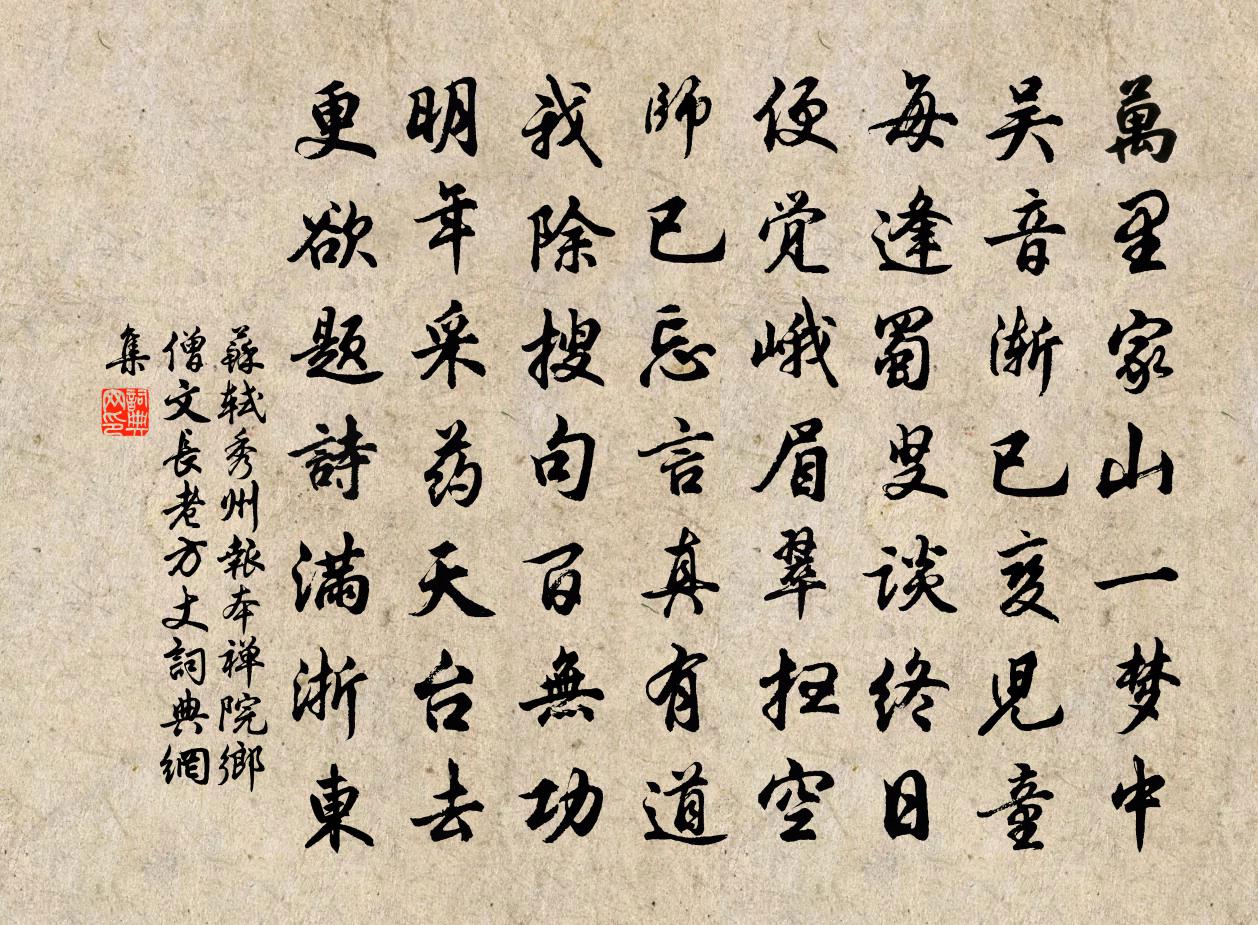 萬里家山一梦中
吴音渐已变児童
每逢蜀叟談终日
便觉峨眉翠扫空
師已忘言真有道
我除搜句百無功
明年采药天台去
更欲题詩满浙東
蘇轼秀州報本禅院鄉
僧文長老方丈詞典網
集
詞典
网印